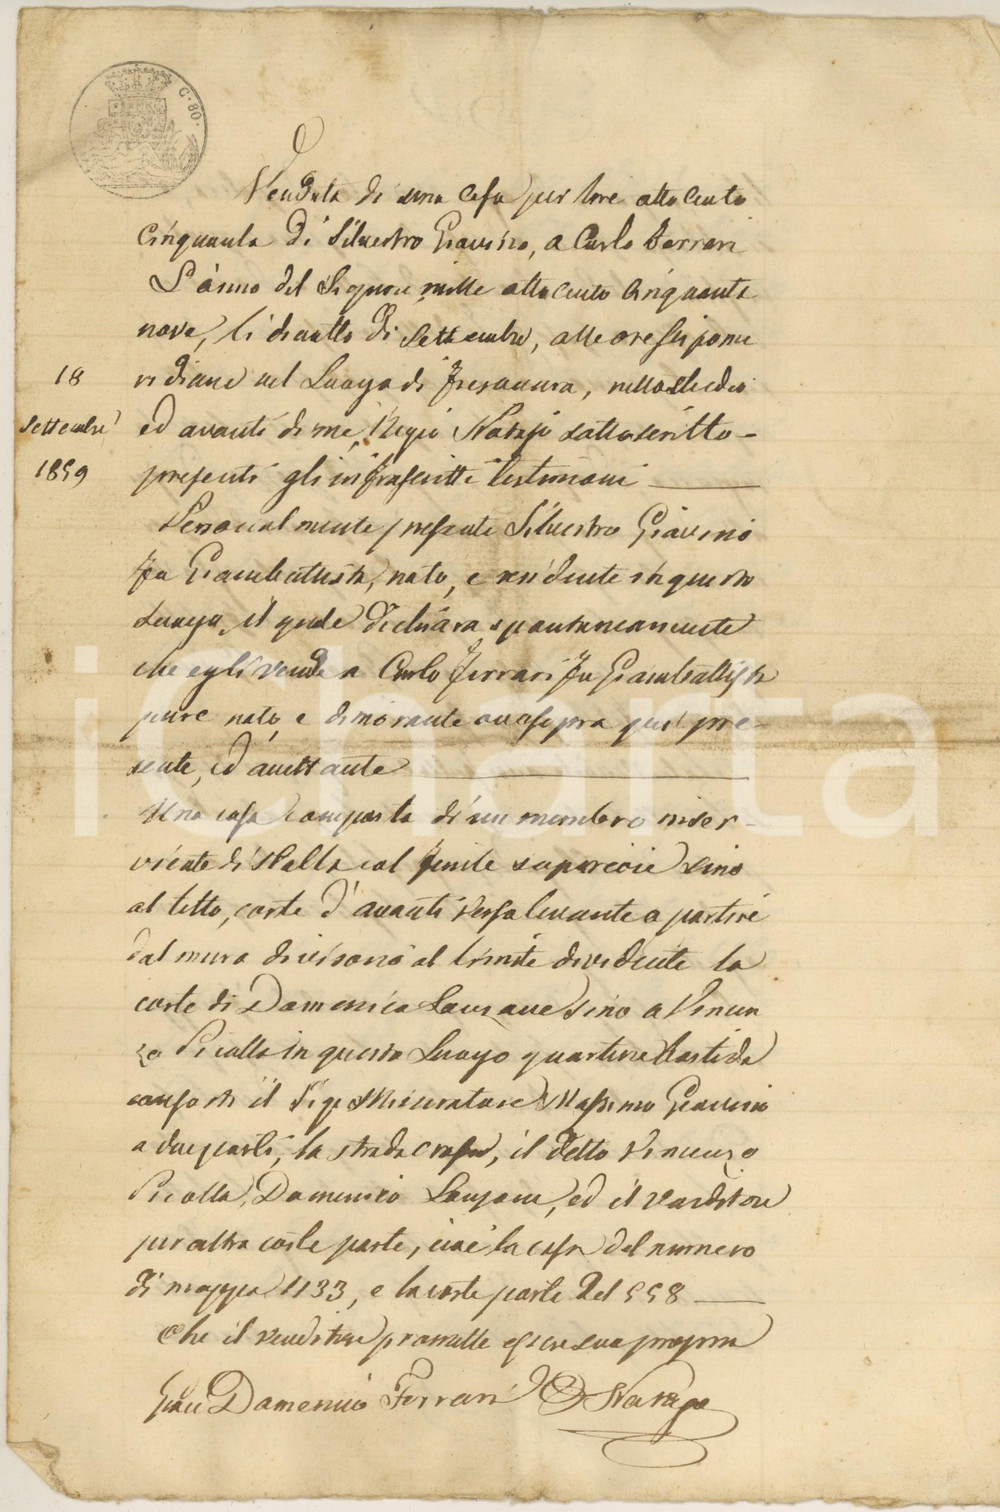 C. 80.
Vendita di una casa per lire otto cento
cinquanta di Silvestro Giavino, a Carlo Ferrari
L'anno del Signore mille otto cento cinquanta
nove, li diciotto di Settembre, alle ore sei pome
ridiane nel Luogo di, nello studio
18
Settembre
1859
ed avanti di me, Regio Notajo sottoscritto -
presenti gli infrascritti testimoni
Personalmente presente Silvestro Giavino
fu Giambattista, nato, e residente in questo
Luogo, il quale dichiara spontaneamente
che egli vende a Carlo Ferrari fu Giambattista
pure nato, e dimorante ove sopra qui pre-
sente, ed accettante
Una casa composta di un membro inser-
viente di stalla col fenile superiore sino
al tetto, corte d'avanti verso levante a partire
dal muro divisorio al limite dividente la
corte di Domenico sino a Vincen
zo Picolla in questo Luogo quartiere Bastida
consorti il Sig.r Misuratore Massimo Giavino
a due parti, la strada, il detto Vincenzo
Picolla, Domenico, ed il venditore
per altra corte parte, cioè la casa del numero
di mappa 1133, e la corte parte del 558
Che il venditore promette essere sua propria
Domenico Ferrari Notajo
iCharta